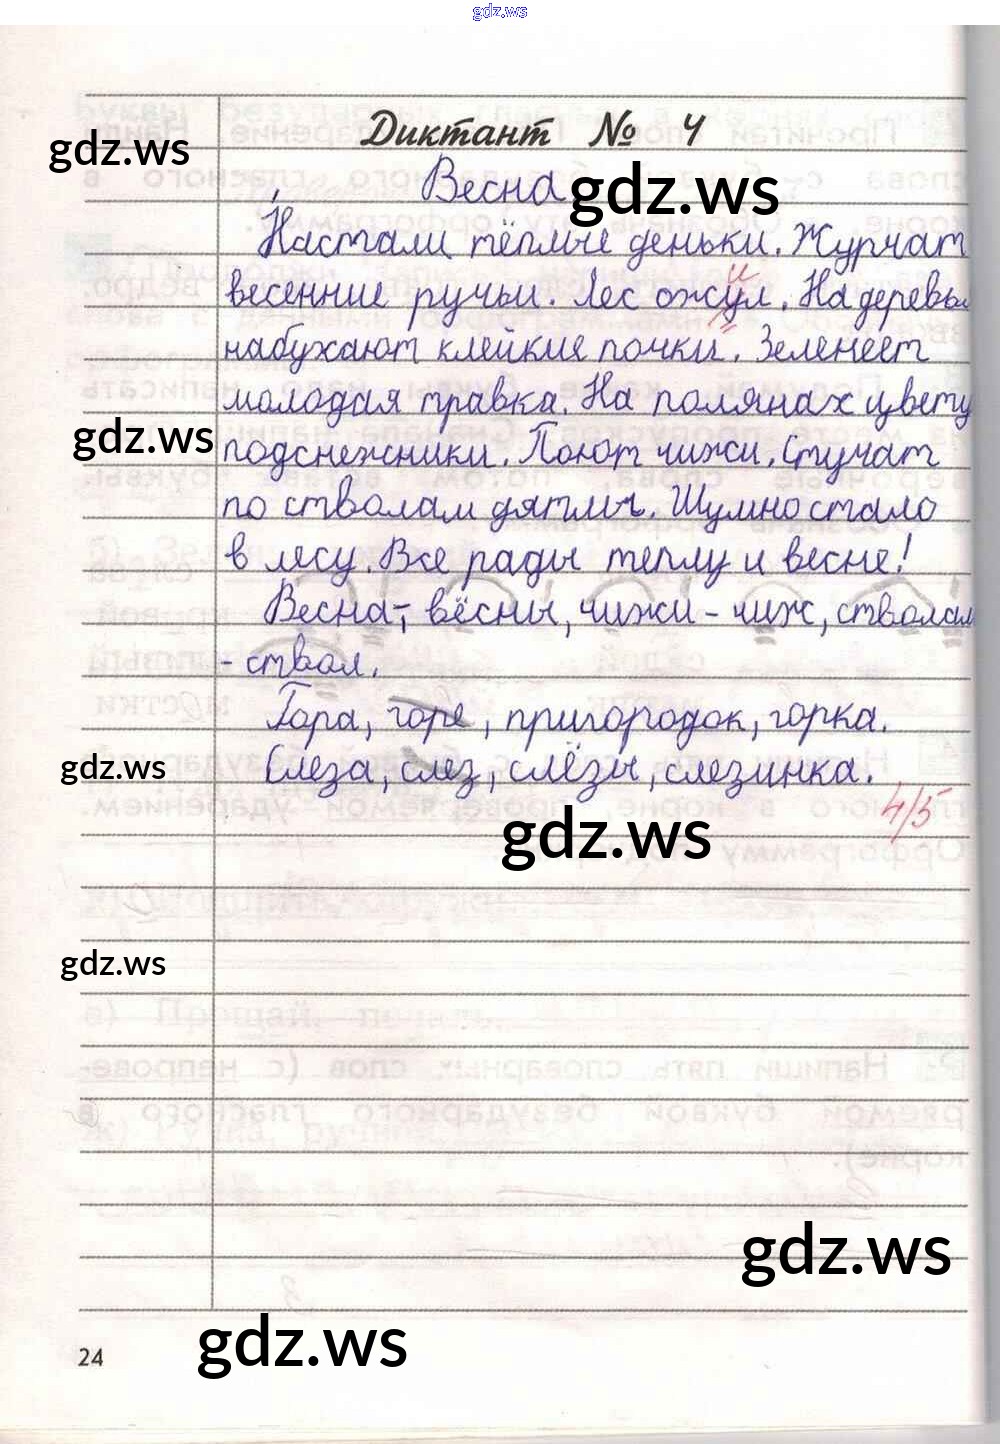 gdz.ws
Диктант № 4
gdz.ws
Весна
gdz.ws
Настали тёплые деньки. Журчат
и
весенние ручьи. Лес ожул. На деревьях
набухают клейкие почки. Зеленеет
молодая травка. На полянах цвету
gdz.ws
подснежники. Поют чижи. Стучат
по стволам дятлы. Шумно стало
в лесу. Все рады теплу и весне!
Весна -, вёсны, чижи - чиж, стволам
- ствол.
Гора, горе, пригородок, горка.
gdz.ws
Слеза, слез, слёзы, слезинка.
4/5
gdz.ws
gdz.ws
gdz.ws
gdz.ws
24